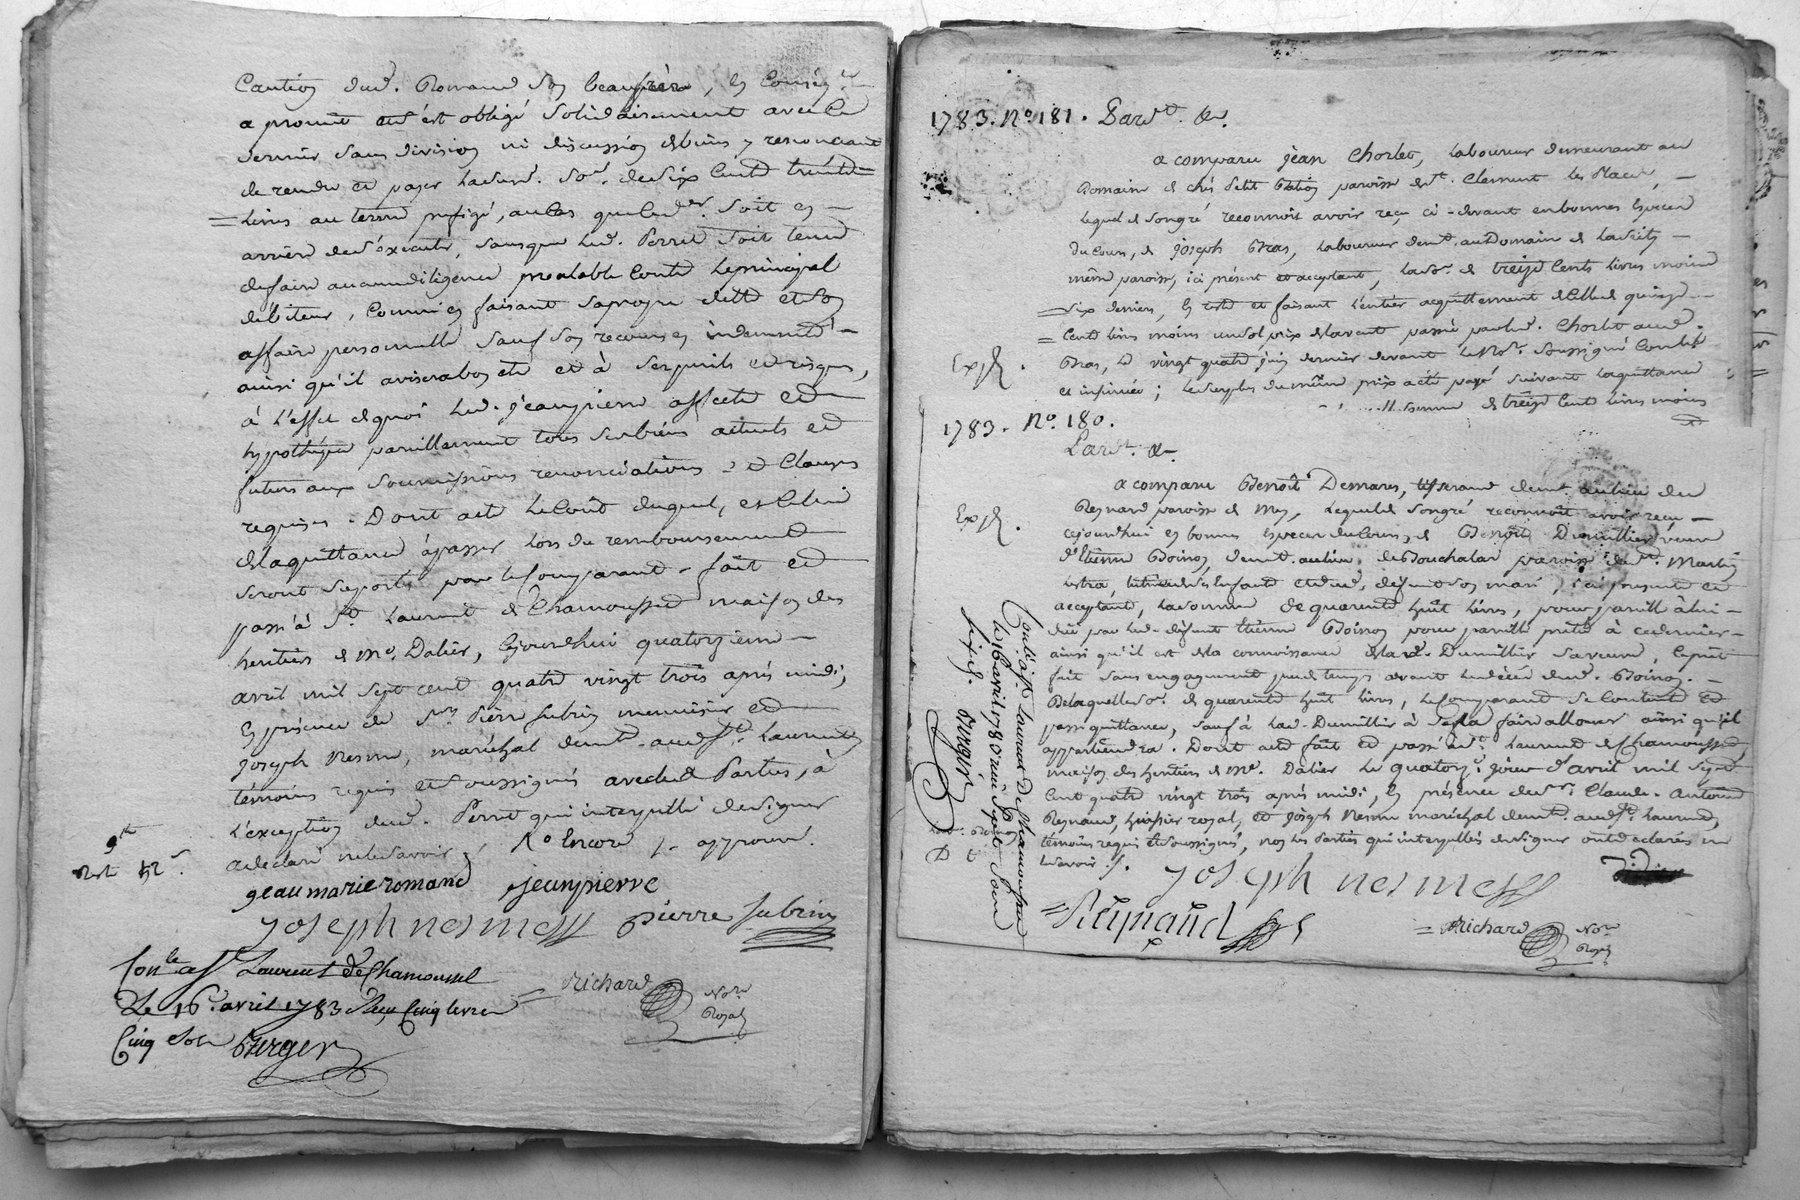 Caution dud. Romand son beaufrère, en conséq.ce
a promit et s'est obligé solidairement avec le
dernier sans division ni discussion de biens y renonceant
de rendre et payer lad. so.e de six cent trente
livres au terme prefigé, au cas que led. der. soit en
arrière de s'executer, sans que led. Perret soit tenu
de faire aucune diligence prealable contre le principal
débiteur, comme en faisant sa propre dette et son
affaire personnelle sauf son recours en indemnité
ainsi qu'il avisera bon etre et à ses perils et risques,
à l'effet de quoi led. jeanpierre affecte et
hypothèque pareillement tous ses biens actuels et
futurs aux soumissions renonciations et clauses
requises. Dont acte le coût duquel, et celui
de la quittance à passer lors du remboursement
seront suportés par le comparant. fait et
passé à St. Laurent de Chamousset maison des
heritiers de Me. Dalier, cejourd'hui quatorzieme
avril mil sept cent quatre vingt trois après midi,
en présence de Srs. Pierre Subrin menuisier et
Joseph Nesme, maréchal demt. aud. St. Laurent
témoins requis et soussignés avec led. Parties, à
l'exception dud. Perret qui interpellé de signer
a declaré ne le savoir
jeau marie romand jeanpierre
joseph nesme pierre subrin
Conlé a St. Laurent de Chamousset
Le 16. avril 1783 Reçu cinq livres
Cinq sols Berger
Richard Nore
Royal
1783. No. 181. Pardt. &.
a comparu jean Chorlet, laboureur demeurant au
Domaine de chés Petit paroisse de St. Clement les Places,
lequel de son gré reconnoit avoir reçu ci-devant en bonnes especes
du cours, de joseph Gras, laboureur demt. au Domaine de
même paroisse, ici présent et acceptant, la so.e de treize cents livres moins
six deniers, en reste et faisant l'entier acquittement de celle de quinze
cent livres moins un sol prix de la vente passée par led. Chorlet aud.
Gras, le vingt quatre juin dernier devant le Nore. soussigné
et insinuée; le surplus du même prix a été payé suivant la quittance
somme de treize cent livres moins
Expé.
1783. No. 180.
Pardt. &.
Expé.
a comparu Benoît Demares, tisserand demt. au lieu du
Reynard paroisse de Mys, lequel de son gré reconnoit avoir reçu
cejourd'hui en bonnes especes du cours, de Benoite Dumillier veuve
d'Etienne Boinon, demt. au lieu de Bouchalas paroisse de St. Martin
tutrice de ses enfants et dud. défunt son mari, ici présente et
acceptante, la somme de quarente huit livres, pour pareille à lui
due par led. défunt Etienne Boinon pour pareille prêtée à ce dernier
ainsi qu'il est de la connoissance de lad. Dumillier sa veuve, le prêt
fait sans engagement peu de temps avant le décès dud. Boinon.
De laquelle so.e de quarente huit livres, le comparant se contente et
passe quittance, sauf à lad. Dumillier à se la faire allouer ainsi qu'il
appartiendra. Dont acte fait et passé aud. St. Laurent de Chamousset
maison des heritiers de Me. Dalier le quatorze. jour d'avril mil sept
cent quatre vingt trois après midi, en présence de Srs. Claude-Antoine
Reynaud, huissier royal, et joseph Nesme maréchal demt. aud. St. Laurent,
témoins requis et soussignés, non les Parties qui interpellés de signer ont declarés ne
le savoir
joseph nesme
Reynaud
Richard Nore
Royal
Conlé a St. Laurent de Chamousset
le 16 avril 1783 reçu sept sols
six d. Berger